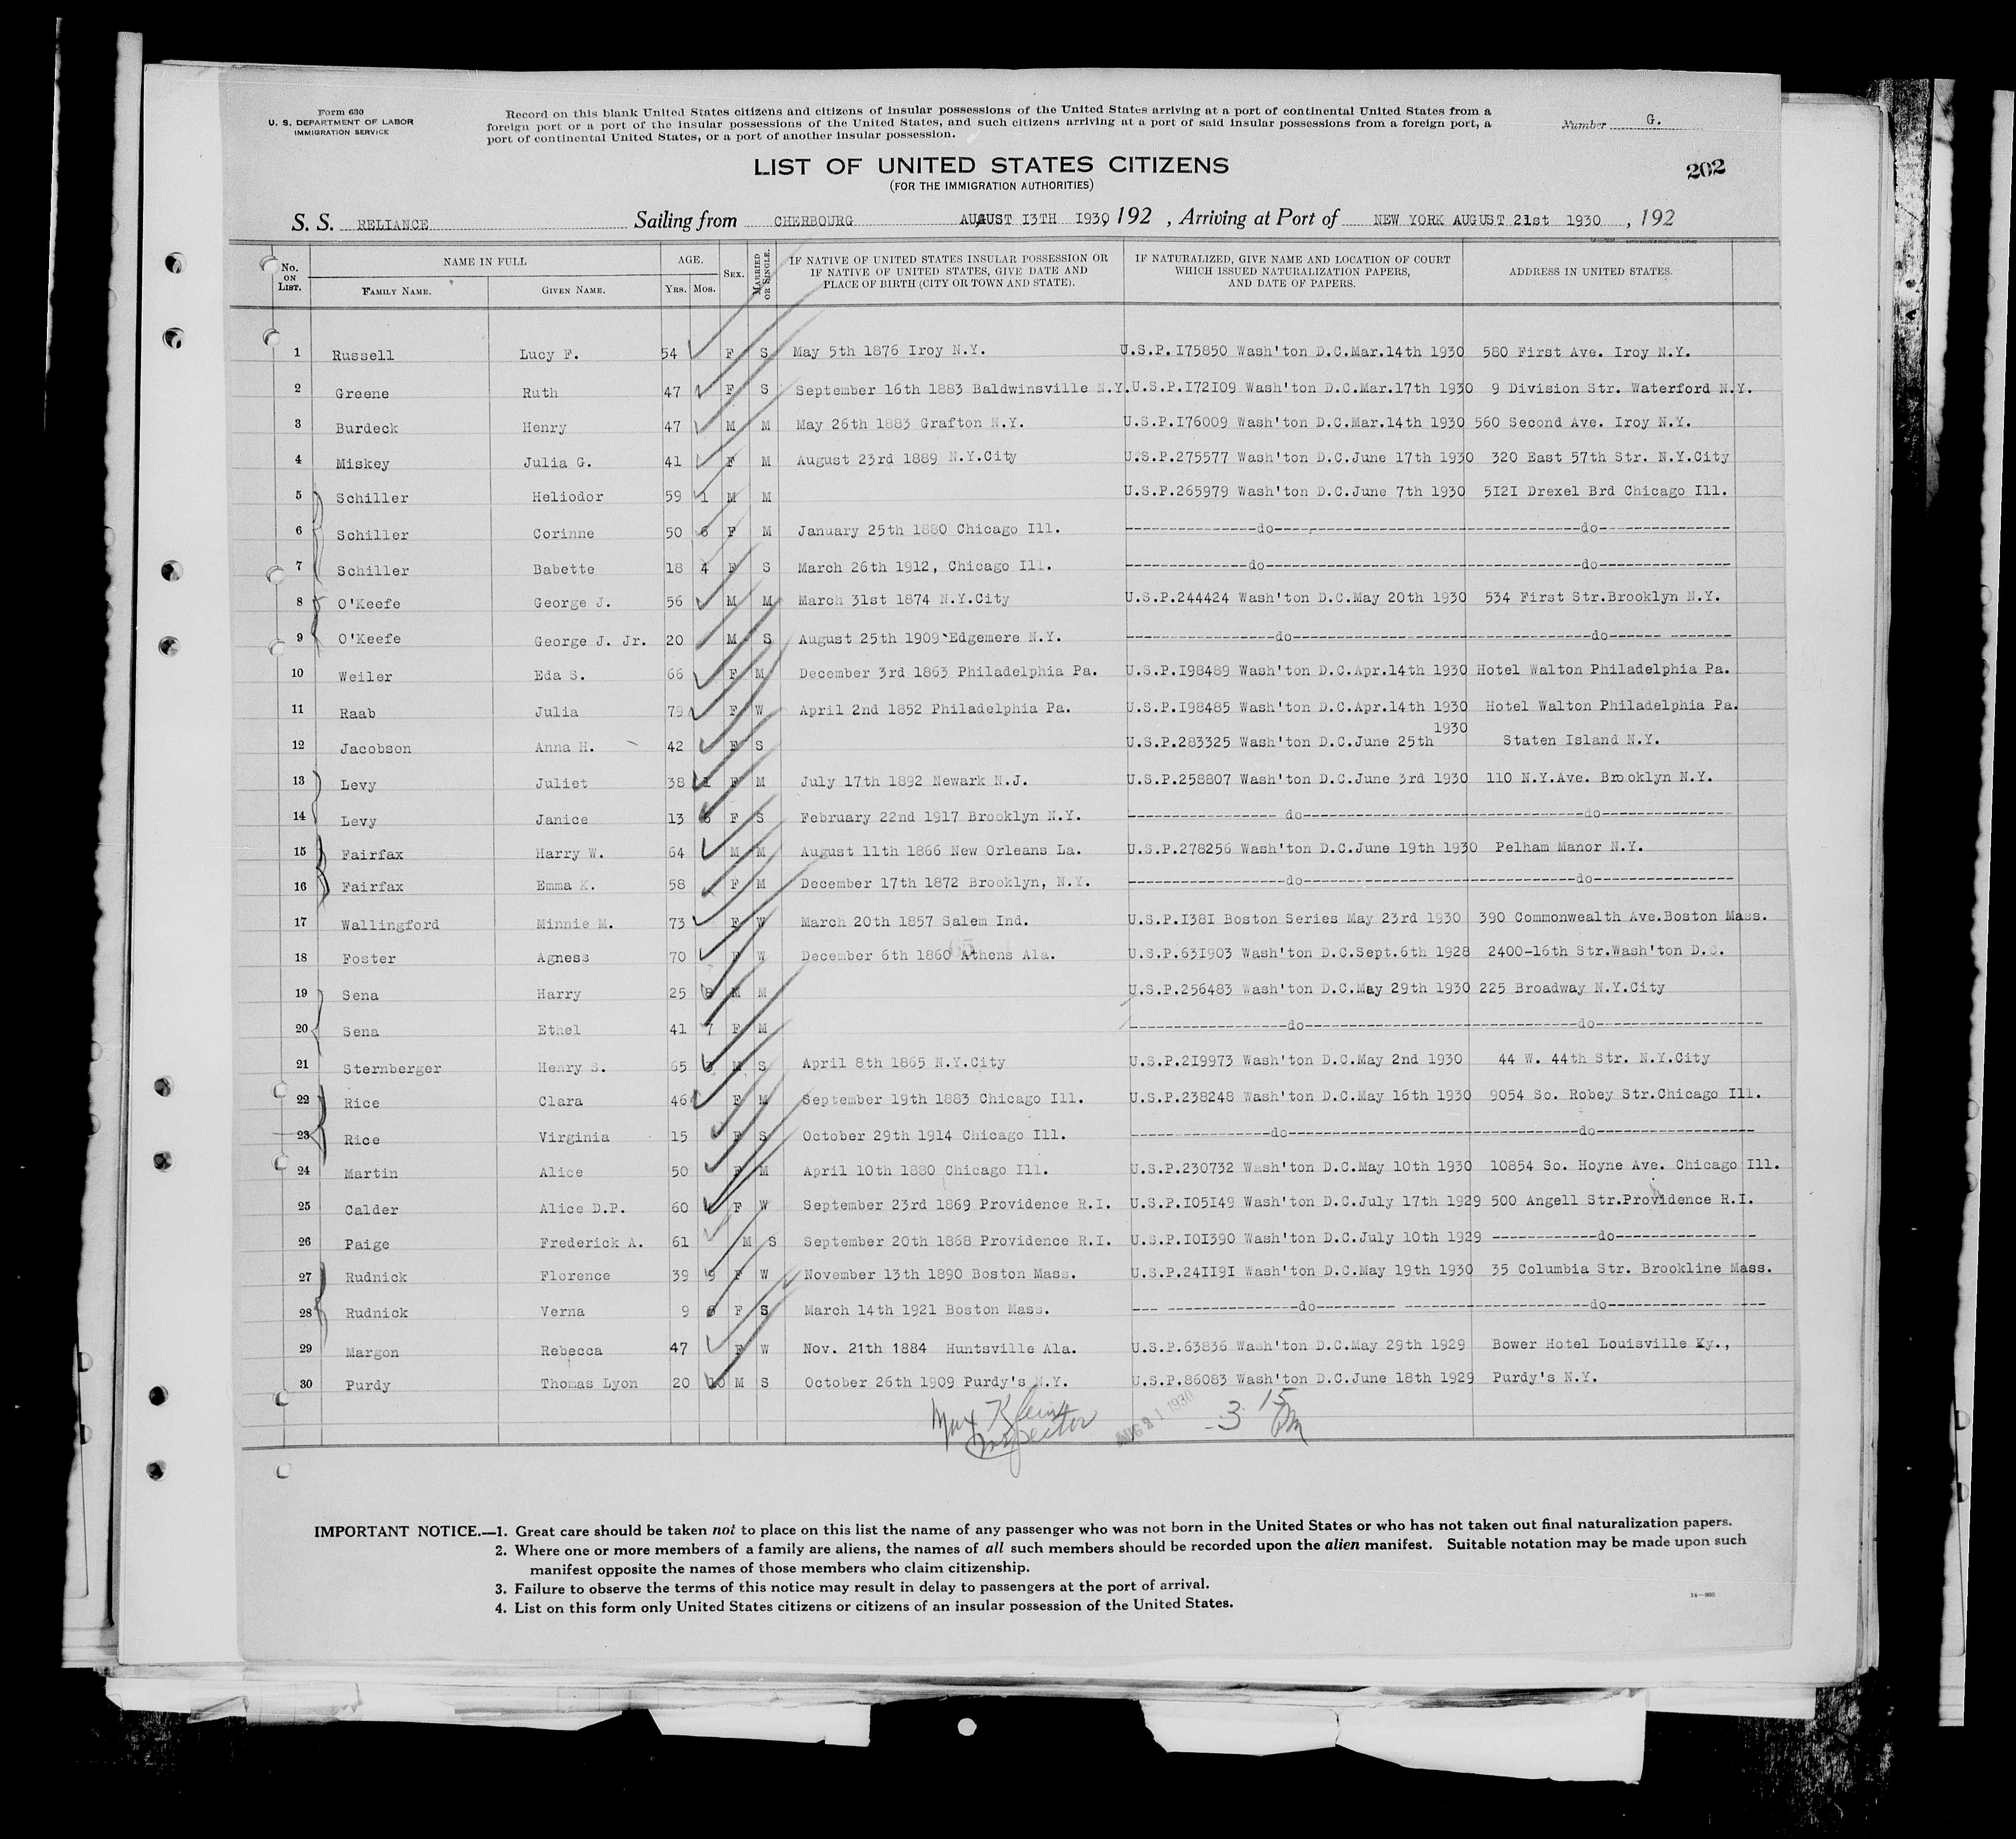 Form 630
U. S. DEPARTMENT OF LABOR
IMMIGRATION SERVICE
Record on this blank United States citizens and citizens of insular possessions of the United States arriving at a port of continental United States from a
foreign port or a port of the insular possessions of the United States, and such citizens arriving at a port of said insular possessions from a foreign port, a
port of continental United States, or a port of another insular possession.
Number G.
202
LIST OF UNITED STATES CITIZENS
(FOR THE IMMIGRATION AUTHORITIES)
S. S. RELIANCE Sailing from CHERBOURG AUGUST I3TH I930 192 , Arriving at Port of NEW YORK AUGUST 21st 1930 , 192
No. ON LIST. NAME IN FULL AGE. SEX. MARRIED OR SINGLE. IF NATIVE OF UNITED STATES INSULAR POSSESSION OR IF NATIVE OF UNITED STATES, GIVE DATE AND PLACE OF BIRTH (CITY OR TOWN AND STATE). IF NATURALIZED, GIVE NAME AND LOCATION OF COURT WHICH ISSUED NATURALIZATION PAPERS, AND DATE OF PAPERS. ADDRESS IN UNITED STATES.
FAMILY NAME. GIVEN NAME. YRS. MOS.
1 Russell Lucy F. 54 F S May 5th 1876 Iroy N.Y. U.S.P.I75850 Wash'ton D.C.Mar.14th 1930 580 First Ave. Iroy N.Y.
2 Greene Ruth 47 F S September 16th 1883 Baldwinsville N.Y. U.S.P.I72I09 Wash'ton D.C.Mar.17th 1930 9 Division Str. Waterford N.Y.
3 Burdeck Henry 47 M M May 26th 1883 Grafton N.Y. U.S.P.I76009 Wash'ton D.C.Mar.14th 1930 560 Second Ave. Iroy N.Y.
4 Miskey Julia G. 41 F M August 23rd 1889 N.Y.City U.S.P.275577 Wash'ton D.C.June 17th 1930 320 East 57th Str. N.Y.City
5 Schiller Heliodor 59 1 M M U.S.P.265979 Wash'ton D.C.June 7th 1930 5I2I Drexel Brd Chicago Ill.
6 Schiller Corinne 50 6 F M January 25th 1880 Chicago Ill. do do
7 Schiller Babette 18 4 F S March 26th 1912, Chicago Ill. do do
8 O'Keefe George J. 56 M M March 31st 1874 N.Y.City U.S.P.244424 Wash'ton D.C.May 20th 1930 534 First Str.Brooklyn N.Y.
9 O'Keefe George J. Jr. 20 M S August 25th 1909 Edgemere N.Y. do do
10 Weiler Eda S. 66 F M December 3rd 1863 Philadelphia Pa. U.S.P.I98489 Wash'ton D.C.Apr.14th 1930 Hotel Walton Philadelphia Pa.
11 Raab Julia 79 F W April 2nd 1852 Philadelphia Pa. U.S.P.I98485 Wash'ton D.C.Apr.14th 1930 Hotel Walton Philadelphia Pa.
12 Jacobson Anna H. 42 F S U.S.P.283325 Wash'ton D.C.June 25th 1930 Staten Island N.Y.
13 Levy Juliet 38 1 F M July 17th 1892 Newark N.J. U.S.P.258807 Wash'ton D.C.June 3rd 1930 110 N.Y.Ave. Brooklyn N.Y.
14 Levy Janice 13 6 F S February 22nd 1917 Brooklyn N.Y. do do
15 Fairfax Harry W. 64 M M August 11th 1866 New Orleans La. U.S.P.278256 Wash'ton D.C.June 19th 1930 Pelham Manor N.Y.
16 Fairfax Emma K. 58 F M December 17th 1872 Brooklyn, N.Y. do do
17 Wallingford Minnie M. 73 F W March 20th 1857 Salem Ind. U.S.P.I38I Boston Series May 23rd 1930 390 Commonwealth Ave.Boston Mass.
18 Foster Agness 70 F W December 6th 1860 Athens Ala. U.S.P.63I903 Wash'ton D.C.Sept.6th 1928 2400-16th Str.Wash'ton D.C.
19 Sena Harry 25 8 M M U.S.P.256483 Wash'ton D.C.May 29th 1930 225 Broadway N.Y.City
20 Sena Ethel 41 7 F M do do
21 Sternberger Henry S. 65 M S April 8th 1865 N.Y.City U.S.P.2I9973 Wash'ton D.C.May 2nd 1930 44 W. 44th Str. N.Y.City
22 Rice Clara 46 F M September 19th 1883 Chicago Ill. U.S.P.238248 Wash'ton D.C.May 16th 1930 9054 So. Robey Str.Chicago Ill.
23 Rice Virginia 15 F S October 29th 1914 Chicago Ill. do do
24 Martin Alice 50 F M April 10th 1880 Chicago Ill. U.S.P.230732 Wash'ton D.C.May 10th 1930 10854 So. Hoyne Ave. Chicago Ill.
25 Calder Alice D.P. 60 F W September 23rd 1869 Providence R.I. U.S.P.I05I49 Wash'ton D.C.July 17th 1929 500 Angell Str.Providence R.I.
26 Paige Frederick A. 61 M S September 20th 1868 Providence R.I. U.S.P.I0I390 Wash'ton D.C.July 10th 1929 do
27 Rudnick Florence 39 9 F W November 13th 1890 Boston Mass. U.S.P.24II9I Wash'ton D.C.May 19th 1930 35 Columbia Str. Brookline Mass.
28 Rudnick Verna 9 6 F S March 14th 1921 Boston Mass. do do
29 Margon Rebecca 47 F W Nov. 21th 1884 Huntsville Ala. U.S.P.63836 Wash'ton D.C.May 29th 1929 Bower Hotel Louisville Ky.,
30 Purdy Thomas Lyon 20 10 M S October 26th 1909 Purdy's N.Y. U.S.P.86083 Wash'ton D.C.June 18th 1929 Purdy's N.Y.
Max Klein AUG 21 1930 3 15 PM
Inspector
IMPORTANT NOTICE.—1. Great care should be taken not to place on this list the name of any passenger who was not born in the United States or who has not taken out final naturalization papers.
2. Where one or more members of a family are aliens, the names of all such members should be recorded upon the alien manifest. Suitable notation may be made upon such
manifest opposite the names of those members who claim citizenship.
3. Failure to observe the terms of this notice may result in delay to passengers at the port of arrival.
4. List on this form only United States citizens or citizens of an insular possession of the United States.